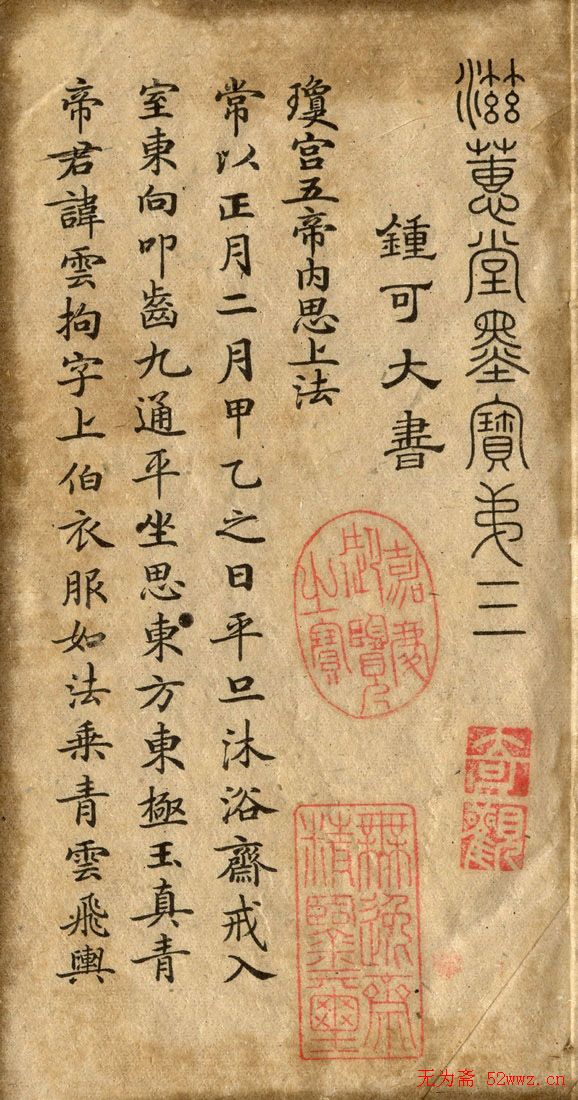 滋蕙堂墨寶弟三
鍾可大書
瓊宫五帝内思上法
常以正月二月甲乙之日平旦沐浴齋戒入
室東向叩齒九通平坐思東方東極玉真青
帝君諱雲拘字上伯衣服如法乘青雲飛輿
嘉慶御覽之寶
無逸齋精鑒璽
无为斋 52wwz.cn